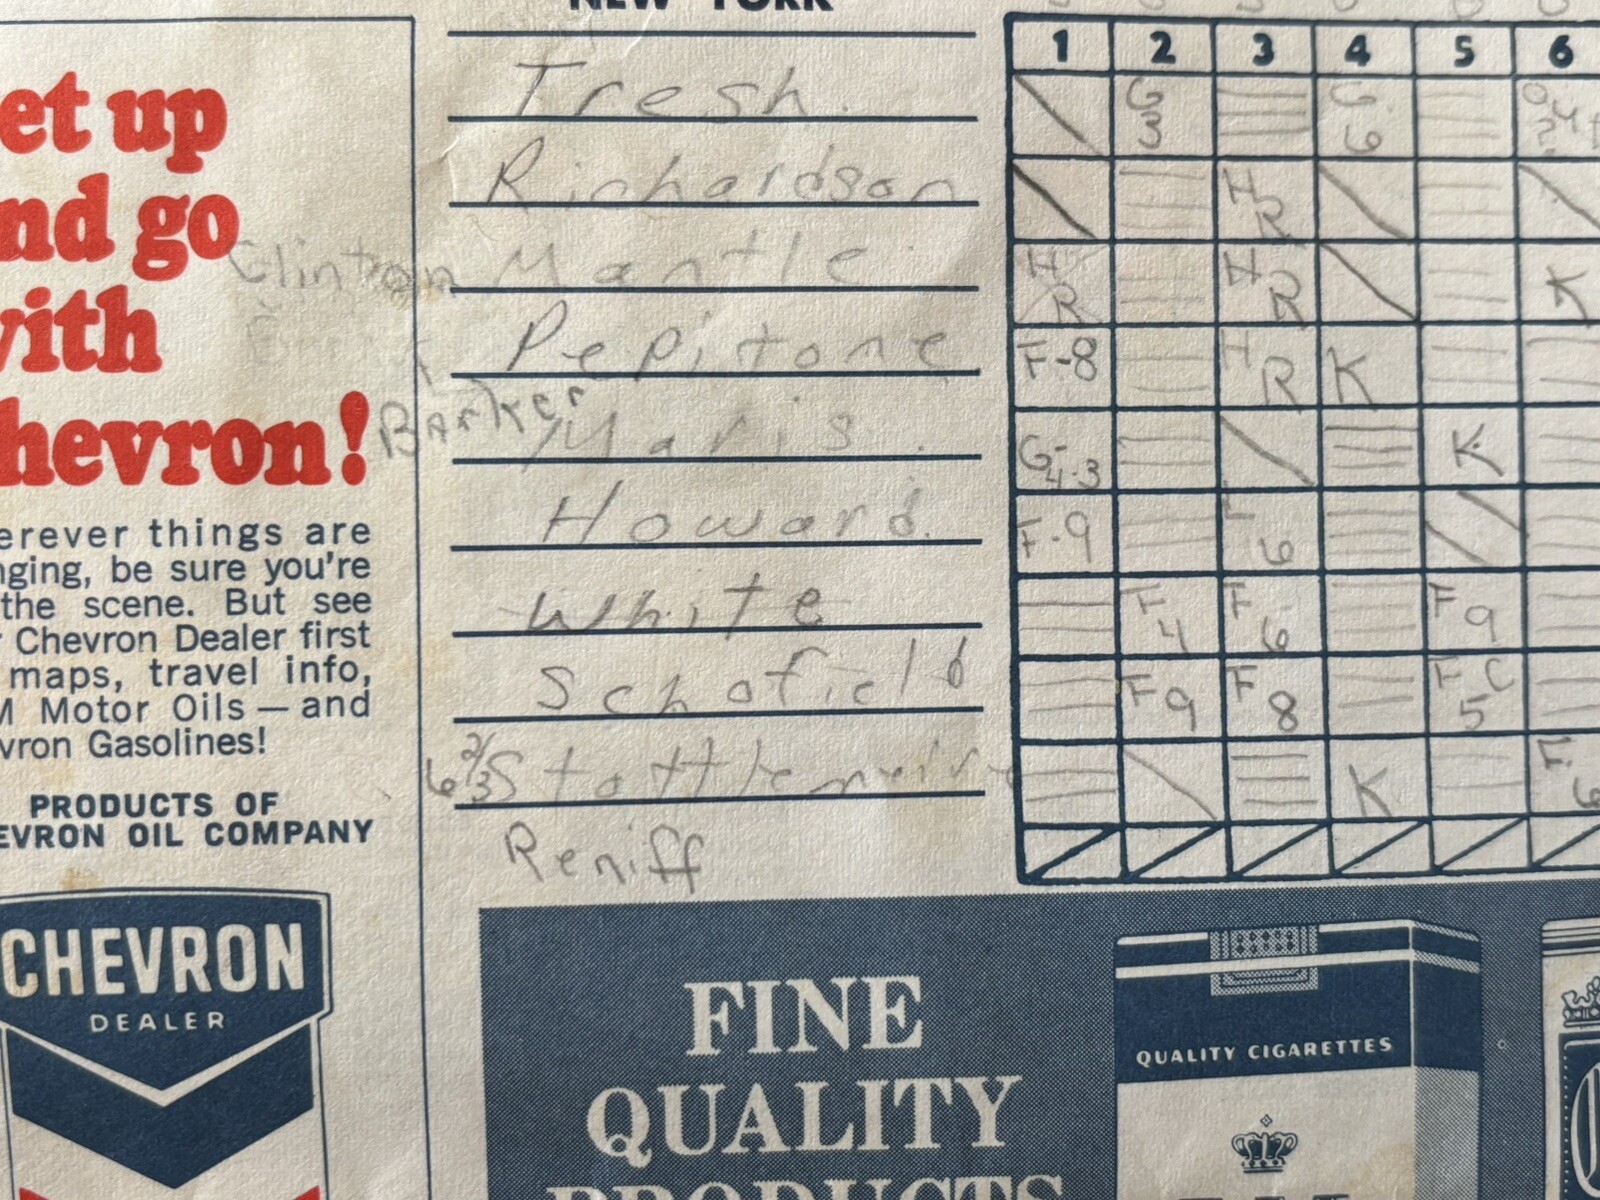 NEW YORK
et up
nd go
with
hevron!
erever things are
nging, be sure you're
the scene. But see
r Chevron Dealer first
maps, travel info,
M Motor Oils — and
vron Gasolines!
PRODUCTS OF
EVRON OIL COMPANY
CHEVRON
DEALER
1 2 3 4 5 6
Tresh. G 3 G. 6 out ?
Richardson HR
Clinton Mantle HR HR K
Pepitone F-8 HR K
Barker Maris. G-4.3 K
Howard. F-9 L 6
White F 4 F 6 F 9
Schofield F 9 F 8 FC 5
6 2/3 Stottlemeire K F. 6
Reniff
FINE
QUALITY
PRODUCTS
QUALITY CIGARETTES